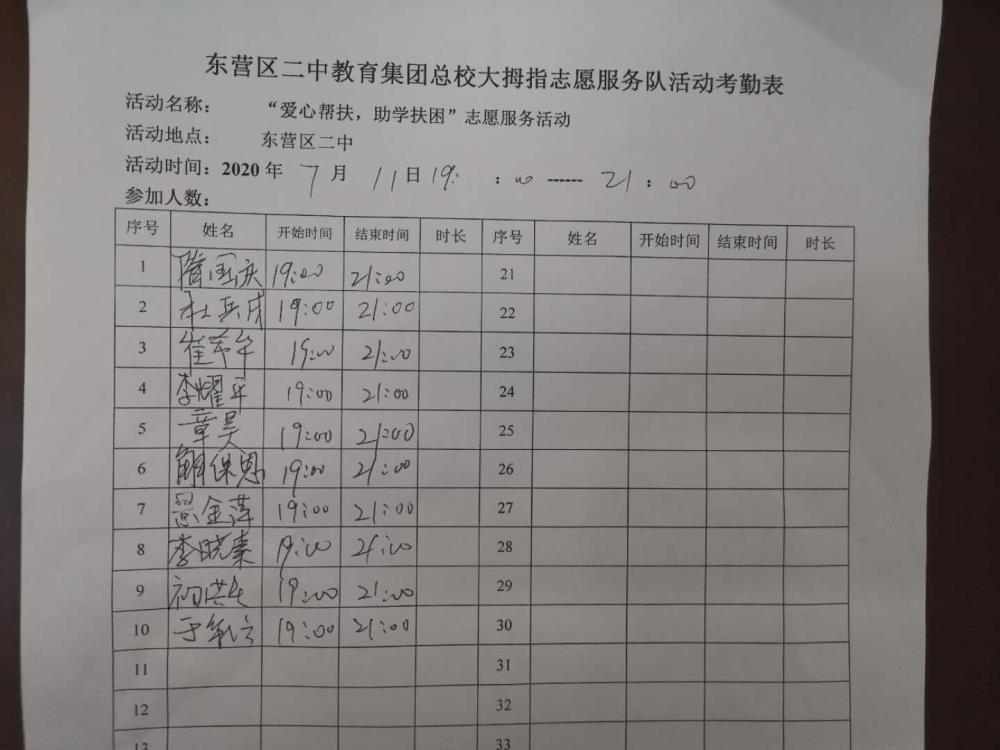 东营区二中教育集团总校大拇指志愿服务队活动考勤表
活动名称： “爱心帮扶，助学扶困”志愿服务活动
活动地点： 东营区二中
活动时间：2020 年 7 月 11 日 19: ：00 ------ 21：00
参加人数：
序号 姓名 开始时间 结束时间 时长 序号 姓名 开始时间 结束时间 时长
1 隋国庆 19:00 21:00 21
2 杜兵成 19:00 21:00 22
3 崔 19:00 21:00 23
4 李耀军 19:00 21:00 24
5 章昊 19:00 21:00 25
6 解保恩 19:00 21:00 26
7 金萍 19:00 21:00 27
8 李晓秦 19:00 21:00 28
9 初洪 19:00 21:00 29
10 于 19:00 21:00 30
11 31
12 32
13 33